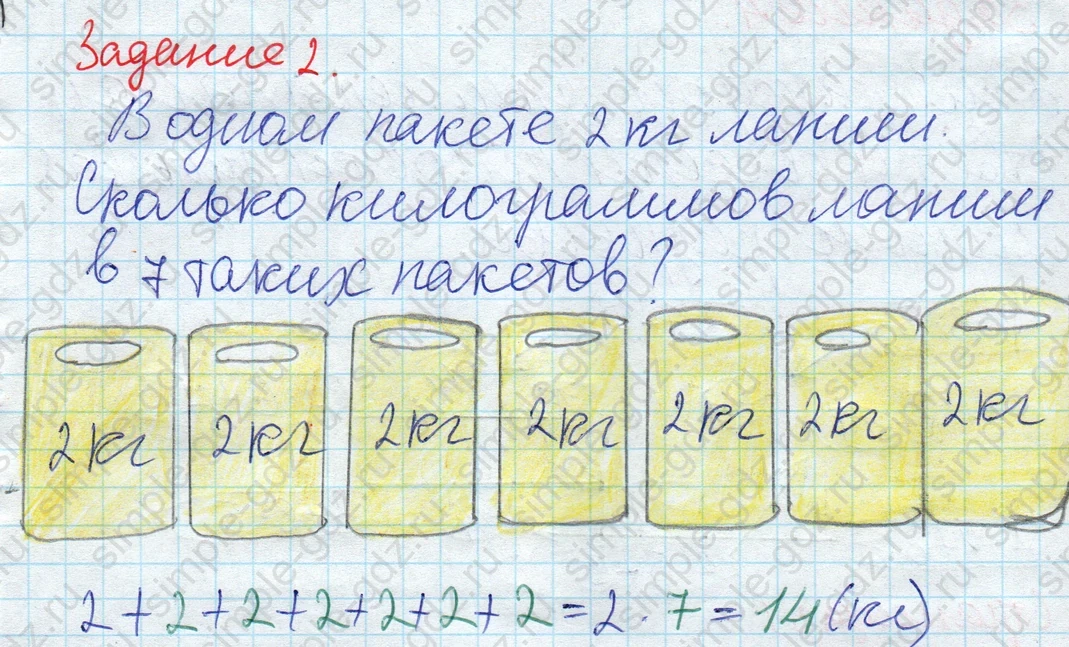 Задание 2.
В одном пакете 2 кг лапши.
Сколько килограммов лапши
в 7 таких пакетов?
2 кг 2 кг 2 кг 2 кг 2 кг 2 кг 2 кг
2 + 2 + 2 + 2 + 2 + 2 + 2 = 2 · 7 = 14 (кг)
simple-gdz.ru